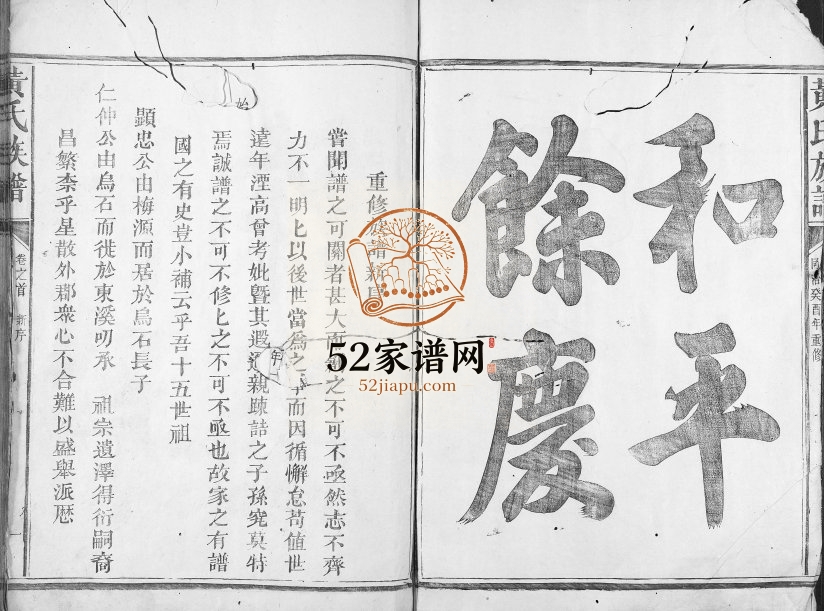 黃氏族譜
國
癸酉年重修
和平
餘慶
重修族譜新序
嘗聞譜之可關者甚大而譜之不可不亟然志不齊
力不一明匕以後世當為之事而因循懈怠苟值世
遠年湮高曾考妣暨其遐邇親疎詰之子孫究莫特
焉誠譜之不可不修匕之不可不亟也故家之有譜
國之有史豈小補云乎吾十五世祖
顯忠公由梅源而居於烏石長子
仁仲公由烏石而徙於東溪叨承 祖宗遺澤得衍嗣裔
昌繁柰乎星散外郡衆心不合難以盛舉派歷
始
年
黃氏族譜
卷之首 新序
52家谱网
52jiapu.com